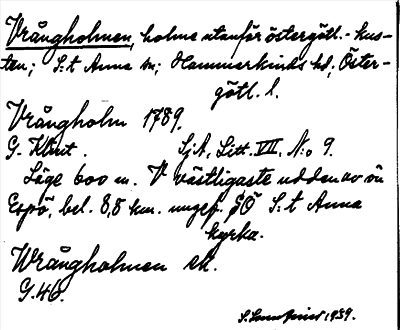 Vrångholmen, holme utanför östergötl.-kus-
ten; S:t Anna sn; Hammarkinds hd; Öster-
götl. l.
Vrångholm 1789.
G. Klint. Sjk, Litt. VII, N:o 9.
Läge 600 m. V västligaste udden av ön
Espö, bel. 8,8 km. ungef. SÖ S:t Anna
kyrka.
Wrångholmen ek.
G.46.
1939.